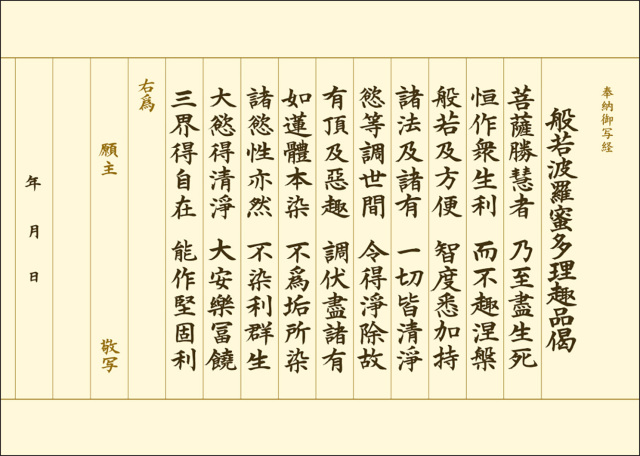 奉納御写経
般若波羅蜜多理趣品偈
菩薩勝慧者 乃至盡生死
恒作衆生利 而不趣涅槃
般若及方便 智度悉加持
諸法及諸有 一切皆清淨
慾等調世間 令得淨除故
有頂及惡趣 調伏盡諸有
如蓮體本染 不爲垢所染
諸慾性亦然 不染利群生
大慾得清淨 大安樂冨饒
三界得自在 能作堅固利
右爲
願主 敬写
年 月 日